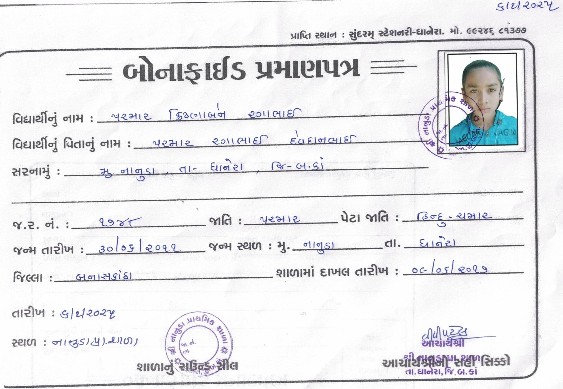 ૬/૫/૨૦૨૫
પ્રાપ્તિ સ્થાન : સુંદરમ્ સ્ટેશનરી-ધાનેરા. મો. ૯૯૨૪૬ ૮૧૩૭૭
બોનાફાઈડ પ્રમાણપત્ર
વિદ્યાર્થીનું નામ : પરમાર કિંજલબેન રગાભાઈ
વિદ્યાર્થીનું પિતાનું નામ : પરમાર રગાભાઈ દેવદાનભાઈ
સરનામું : મુ નાનુડા , તા- ધાનેરા , જિ-બ.કાં
જ.ર. નં. : ૧૭૪૮ જાતિ : પરમાર પેટા જાતિ : હિન્દુ-ચમાર
જન્મ તારીખ : ૩૦/૦૬/૨૦૧૧ જન્મ સ્થળ : મુ. નાનુડા તા. ધાનેરા
જિલ્લા : બનાસકાંઠા શાળામાં દાખલ તારીખ : ૦૮/૦૬/૨૦૧૭
તારીખ : ૬/૫/૨૦૨૫
સ્થળ : નાનુડા પ્રા.શાળા
શાળાનું રાઉન્ડ સીલ
આચાર્યશ્રી
શ્રી નાનુડા પ્રા. શાળા
આચાર્યશ્રીની સહી સિક્કો
તા.ધાનેરા, જિ.બ.કાં